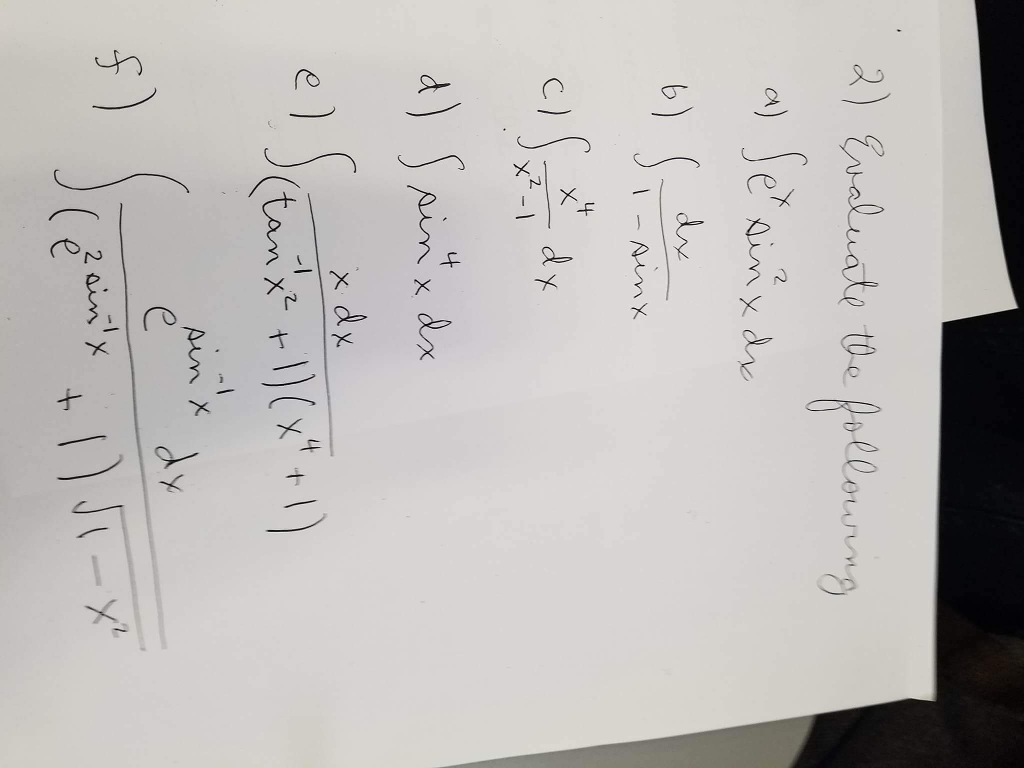 2) Evaluate the following
a) ∫ eˣ sin²x dx
b) ∫ dx / (1 - sinx)
c) ∫ x⁴ / (x² - 1) dx
d) ∫ sin⁴x dx
e) ∫ x dx / ((tan⁻¹x² + 1)(x⁴ + 1))
f) ∫ e^(sin⁻¹x) dx / ((e^(2sin⁻¹x) + 1)√(1 - x²))